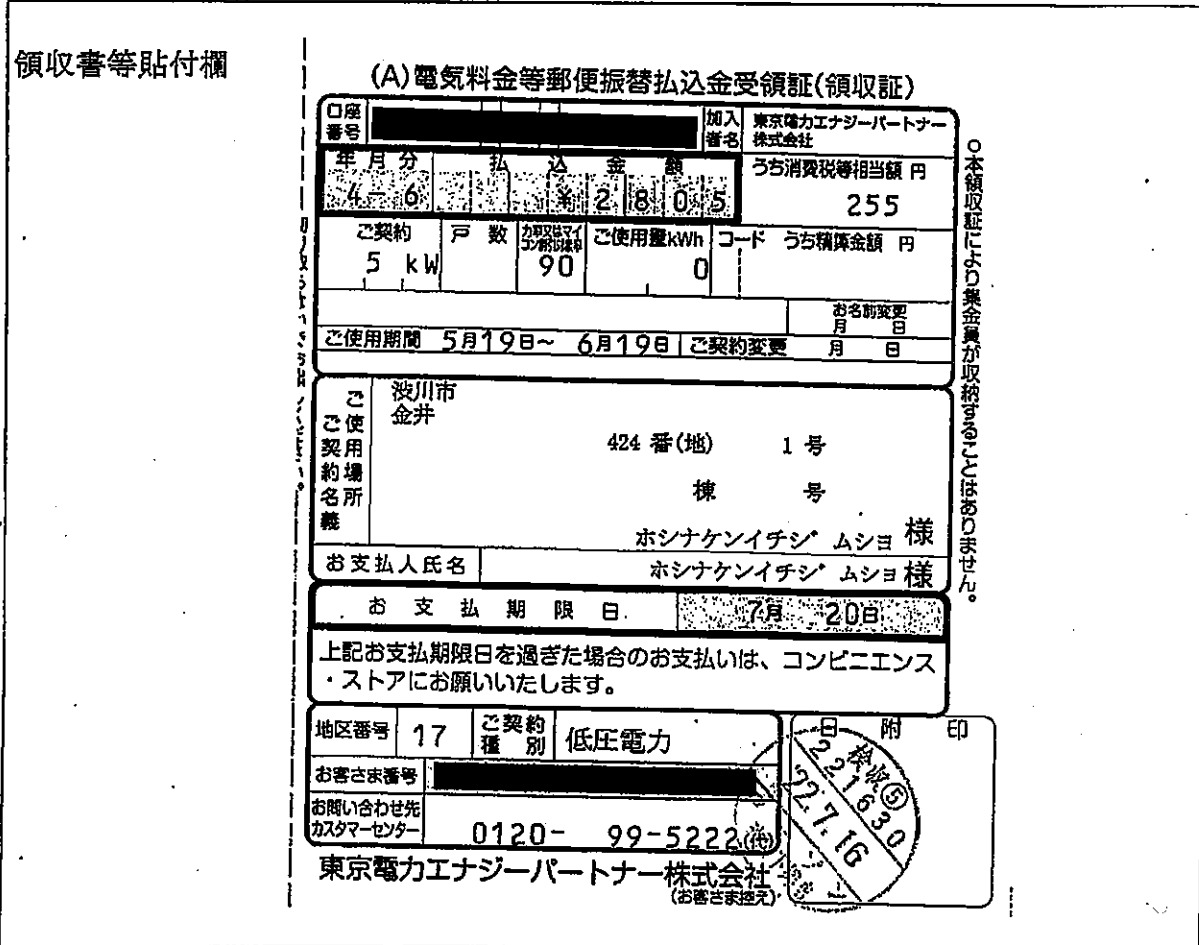 領収書等貼付欄
(A)電気料金等郵便振替払込金受領証(領収証)
口座番号
加入者名
東京電力エナジーパートナー株式会社
年月分 払込金額
4-6 ¥2805
うち消費税等相当額 円
255
ご契約 戸数 力率又はマイコン割引率 ご使用量kWh コード うち精算金額 円
5 kW 90 0
お名前変更
月 日
ご使用期間 5月19日～ 6月19日 ご契約変更 月 日
ご使用場所
ご契約名義
渋川市
金井
424 番(地) 1 号
棟 号
ホシナケンイチジムシヨ 様
お支払人氏名 ホシナケンイチジムシヨ 様
お支払期限日 7月 20日
上記お支払期限日を過ぎた場合のお支払いは、コンビニエンス
・ストアにお願いいたします。
地区番号 17 ご契約種別 低圧電力
お客さま番号
お問い合わせ先
カスタマーセンター 0120- 99-5222(代)
東京電力エナジーパートナー株式会社
(お客さま控え)
日附印
検収⑤
221630
22.7.16
○本領収証により集金員が収納することはありません。